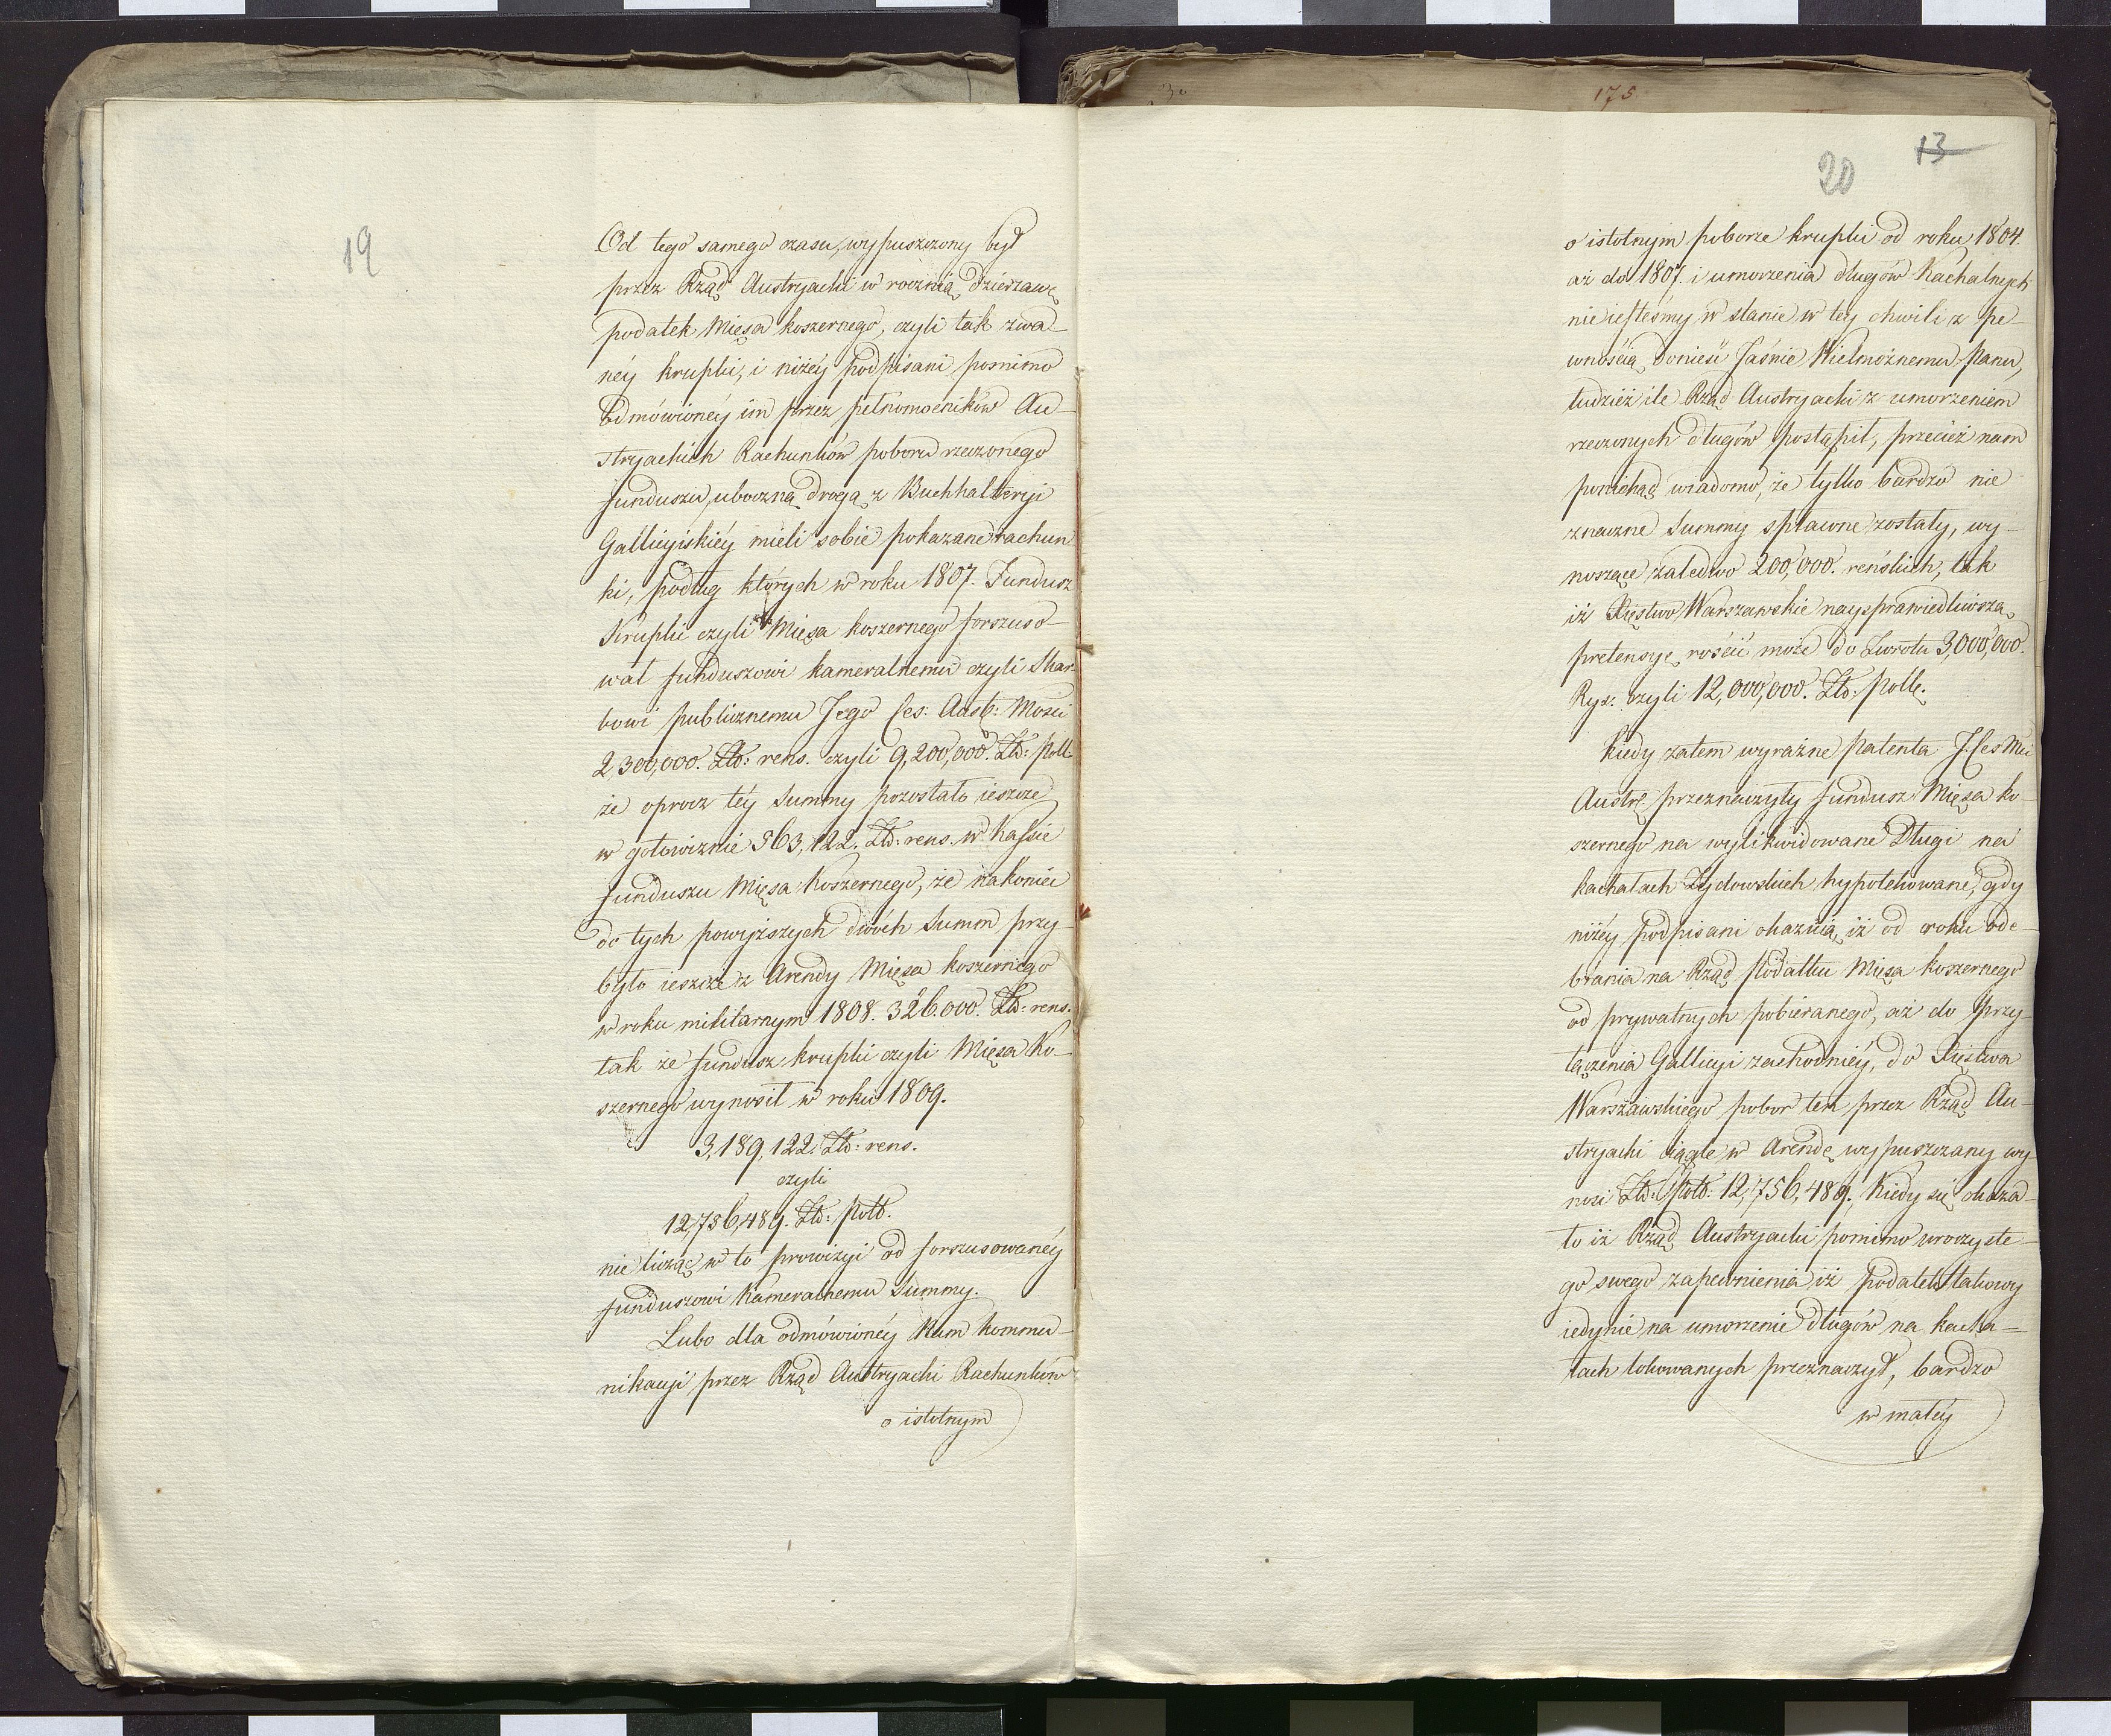 19
Od tego samego czasu, wypuszczony był
przez Rząd Austryacki w roczną dzierzawę
podatek Mięsa koszernego, czyli tak zwa-
néy krupki, i niżéy podpisani pomimo
odmówionéy im przez pełnomocników Au-
stryackich Rachunków poboru rzeczonego
funduszu, uboczną drogą z Buchhalteryi
Gallicyiskiéy mieli sobie pokazane rachun
ki, podług których w roku 1807. Fundusz
Krupki czyli Mięsa koszernego forszuso-
wał funduszowi kameralnemu czyli Skar-
bowi publicznemu Jego Ces: Austr: Mości
2,300,000. Złt: rens. czyli 9,200,000. Złt: poll.
że oprocz téy Summy pozostało ieszcze
w gotowiznie 563,122. Złt: rens. w Kassie
funduszu Mięsa Koszernego, że nakoniec
do tych powyższych dwóch Summ przy-
było ieszcze z Arendy Mięsa koszernego
w roku militarnym 1808. 326.000. Złt: rens.
tak że fundusz krupki czyli Mięsa Ko-
szernego wynosił w roku 1809.
3,189,122. Złt: rens.
czyli
12,756,489. Złt: poll.
nie licząc w to prowizyi od forszusowanéy
funduszowi Kameralnemu Summy.
Lubo dla odmówionéy Nam kommu-
nikacyi przez Rząd Austryacki Rachunków
o istotnym
175
13
20
o istotnym poborze krupki od roku 1804.
aż do 1807. i umorzenia długów Kachalnych
nie iesteśmy w stanie w tey chwili z pe-
wnością donieść Jaśnie Wielmożnemu Panu,
tudzież ile Rząd Austryacki z umorzeniem
rzeczonych długów postąpił, przecież nam
poniekąd wiadomo, że tylko bardzo nie
znaczne Summy spławne zostały, wy-
noszące zaledwo 200,000. reńskich, tak
iż Xięstwo Warszawskie naysprawiedliwszą
pretensyę rościć może do Zwrotu 3,000,000.
Ryz. czyli 12,000,000. Złt: poll.
Kiedy zatem wyraźne Patenta J. Ces Mci
Austr. przeznaczyły fundusz Mięsa ko-
szernego na wylikwidowane Długi na
kachałach Żydowskich hypotekowane, gdy
niżéy podpisani okaznią, iż od roku ode-
brania na Rząd Podatku Mięsa koszernego
od prywatnych pobieranego, aż do przy-
łączenia Gallicyi zachodniéy, do Xięstwa
Warszawskiego pobor ten przez Rząd Au-
stryacki ciągle w Arendę wypuszczany wy
nosi Złt: Poll: 12,756,489, Kiedy się okaza-
ło iż Rząd Austryacki pomimo uroczyste-
go swego zapewnienia iż podatek takowy
iedynie na umorzenie długów na kacha-
łach lokowanych przeznaczył, bardzo
w małéy